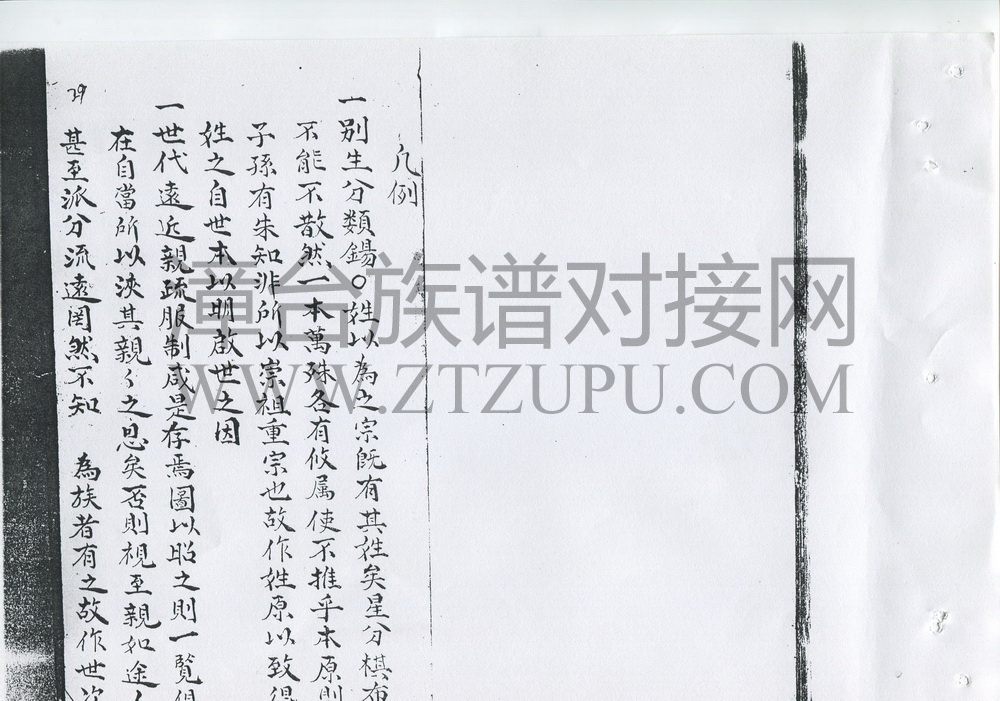 凡例
一别生分類鍚〇姓以為之宗既有其姓矣星分棋布
不能不散然一本萬殊各有攸属使不推乎本原則
子孫有未知非所以崇祖重宗也故作姓原以致得
姓之自世本以明啟世之因
一世代遠近親疏服制咸是存焉圖以昭之則一覧俱
在自當所以浹其親々之恩矣否則視至親如途人
甚至派分流遠罔然不知 為族者有之故作世次
29
章台族谱对接网
WWW.ZTZUPU.COM